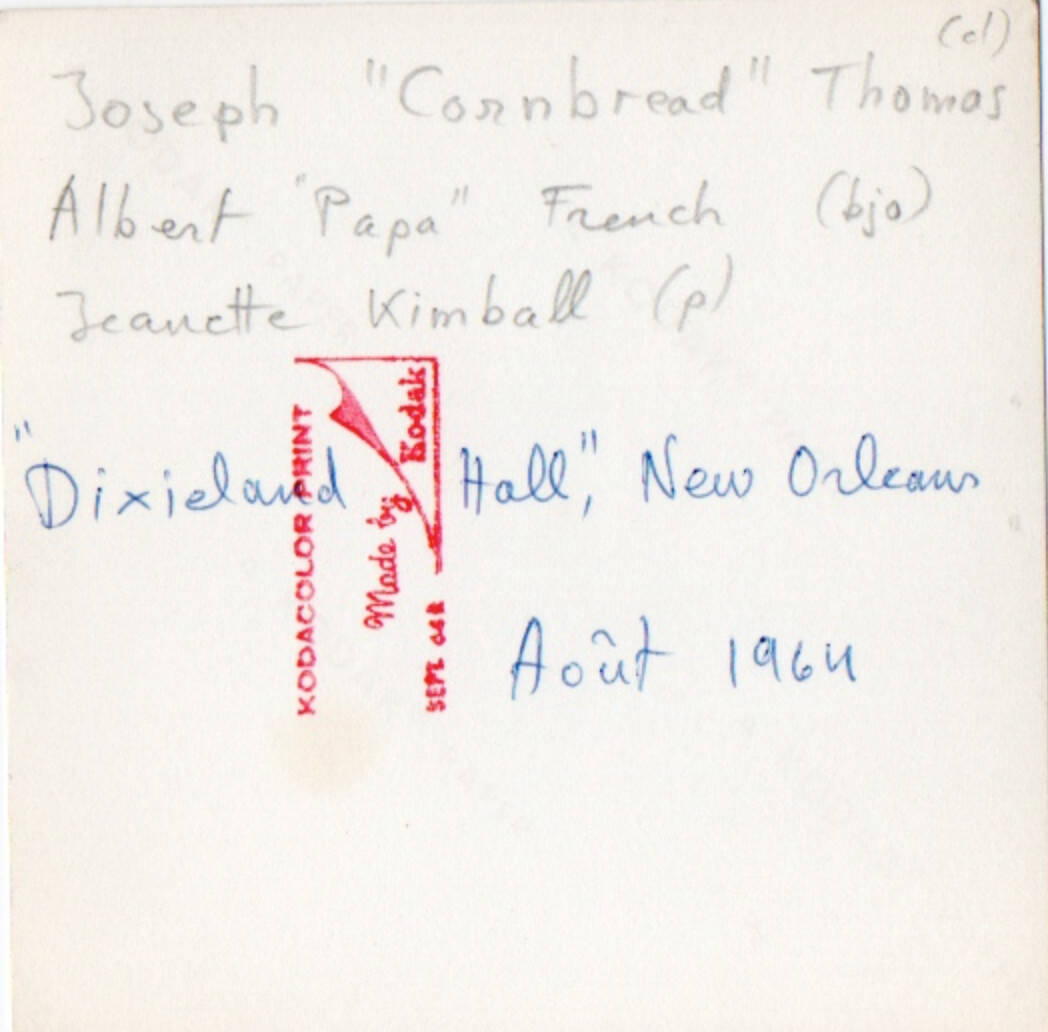 (cl)
Joseph "Cornbread" Thomas
Albert "Papa" French (bjo)
Jeanette Kimball (p)
"Dixieland Hall", New Orleans
Août 1964
KODACOLOR PRINT
Made by Kodak
SEPT.